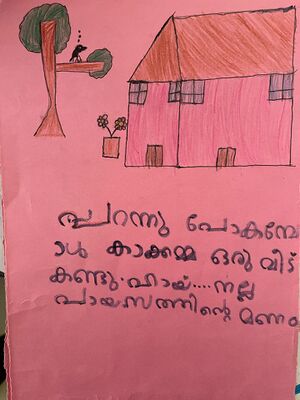 പറന്നു പോകുമ്പോ
ൾ കാക്കമ്മ ഒരു വീട്
കണ്ടു. ഹായ്....നല്ല
പായസത്തിന്റെ മണം